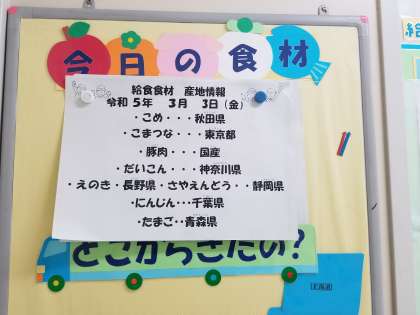 今日の食材
給食食材　産地情報
令和５年　３月　３日（金）
・こめ・・・秋田県
・こまつな・・・東京都
・豚肉・・・国産
・だいこん・・・神奈川県
・えのき・長野県・さやえんどう・・静岡県
・にんじん･･･千葉県
・たまご･･青森県
どこからきたの？
北海道